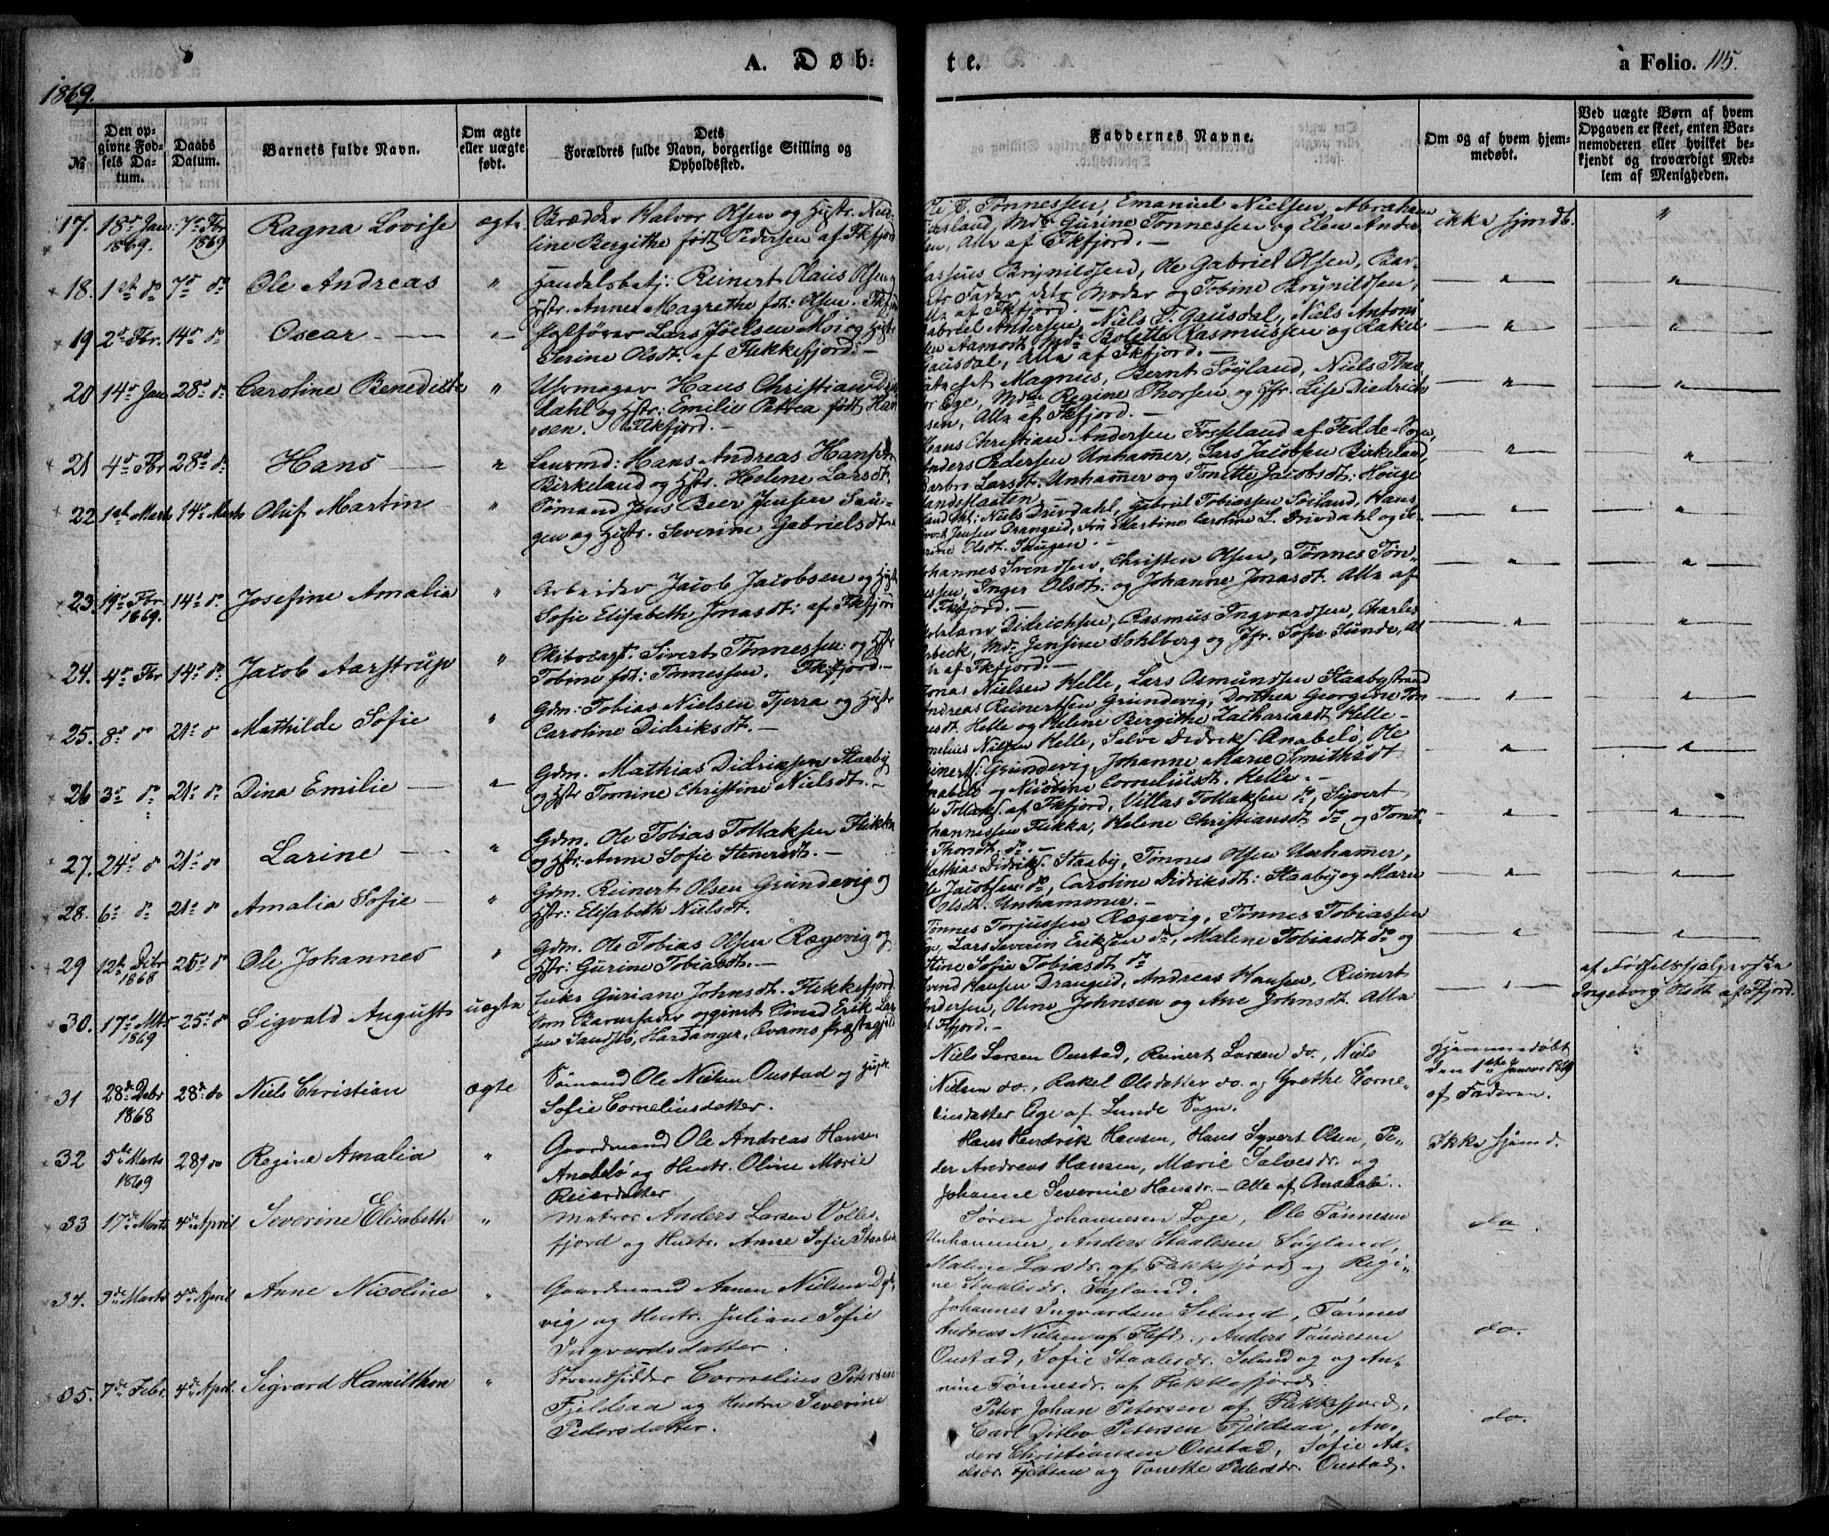 1869.
A. Døb-
te.
a Folio. 115.
№
Den op-
givne Fød-
sels Da-
tum.
Daabs
Datum.
Barnets fulde Navn.
Om ægte
eller uægte
født.
Dets
Forældres fulde Navn, borgerlige Stilling og
Opholdssted.
Faddernes Navne.
Om og af hvem hjem-
medøbt.
Ved uægte Børn af hvem
Opgaven er skeet, enten Bar-
nemoderen eller hvilket be-
kjendt og troværdigt Med-
lem af Menigheden.
17. 18de Jan 1869. 7de Fbr 1869 Ragna Lovise ægte
Halvor Olsen og Hustr.
line Bergithe født Pedersen af Fkfjord
Tønnessen, Emanuel Nielsen, Abraham
Gurine Tønnessen og Elen Ander
Alle af Fkfjord. —
ikke hjmdb. "
18. 1ste do 7de do Ole Andreas "
Handelsbetj: Reinert Olaus Olsen
Hstr. Anne Magrethe fdt: Olsen. Fkfjord
Brynildsen, Ole Gabriel Olsen, Bar-
Fader, dets Moder og Tobine Brynildsen,
af Fkfjord. —
" "
19 2de Fbr. 14de do Oscar — "
Lars Joelsen Moi og Hstr
Serine Olsdt. af Flekkefjord. —
Andersen, Niels T. Gausdal, Niels Antoni
Aamodt, Md. Bolette Rasmussen og Rakel
Gausdal, Alle af Fkfjord. —
" "
20 14de Jan 28de do Caroline Benedikte "
Uhrmager Hans Christian
dahl og Hstr: Emilie Petrea født Han
sen. Fkfjord. —
Magnus, Bernt Søyland, Niels
Ege, Regine Thorsen og Jfr. Lise Diedrich
sen, Alle af Fkfjord. —
" "
21 4de Fbr 28de do Hans — "
Hans Andreas Hansen
Birkeland og Hstr. Helene Larsdt.
Hans Christian Andersen Fosseland af Fedde-Sogn,
Anders Pedersen Unhammer, Lars Jacobsen Birkeland,
Larsdt. Unhammer og Tonette Jacobsdt: Houge
" "
22 1ste Marts 14de Marts Oluf Martin "
Sømand Jens Beer Jensen Sau-
gen og Hstr. Severine Gabrielsdt.
Niels Drivdahl, Gabriel Tobiassen Søiland, Hans
Jensen Drangeid, Martine Caroline S. Drivdahl og
Olsdt. Saugen. —
" "
23. 19de Fbr. 1869. 14de do Josefine Amalia "
Arbeider Jacob Jacobsen og Hstr
Sofie Elisabeth Jonasdt: af Fkfjord
Johannes Svendsen, Christen Olsen, Tønnes Tøn-
nessen, Inger Olsdt: og Johanne Jonasdt. Alle af
Fkfjord. —
" "
24. 4de Fbr 14de do Jacob Aarstrup "
Sivert Tønnessen og Hstr
Tobine fdt: Tønnessen. Fkfjord. —
Didrichsen, Rasmus Ingvardsen, Charles
Jensine Sohlberg og Jfr. Sofie Sunde,
af Fkfjord. —
" "
25. 8de do 21de do Mathilde Sofie "
Gdm: Tobias Nielsen Tjerra og Hstr
Caroline Didriksdt. —
Jonas Nielsen Helle, Lars Osmundsen Staaby
Andreas Reinertsen Grundevig, Dorthea Georgine
Helle og Helene Bergithe Zachariasdt. Helle —
" "
26 3de do 21de do Dina Emilie — "
Gdm. Mathias Didriksen Staaby
og Hstr Tomine Christine Nielsdt. —
Cornelius Nielsen Helle, Salve Didriks Anabelø, Ole
Reinerts: Grundevig, Johanne Marie Smithsdt
Anabelø og Nicoline Corneliusdt. Helle. —
" "
27. 24de do 21de do Larine — "
Gdm. Ole Tobias Tollaksen Flikka
og Hstr: Anne Sofie Stenersdt. —
Tollaks. af Fkfjord, Villas Tollaksen do, Syvert
Johannessen Flikka, Helene Christiansdt do, og
Thorsdt. do. —
" "
28. 6de do 21de do Amalia Sofie — "
Gdm. Reinert Olsen Grundevig og
Hstr: Elisabeth Nielsdt.
Mathias Didriks. Staaby, Tønnes Olsen Unhammer,
Ole Jacobsen do, Caroline Didriksdt: Staaby og Maren
Olsdt. Unhammer. —
" "
29 12te Dcbr 1868 25de do Ole Johannes "
Gdm. Ole Tobias Olsen Rægevig og
Hstr: Gurine Tobiasdt. —
Tønnes Torjussen Rægevig, Tønnes Tobiassen
Ege, Lars Severin Eriksen do, Malene Tobiasdt. do og
Stine Sofie Tobiasdt do
" "
30. 17de Mts 1869 25de do Sigvald August uægte
Pike Guriane Johnsdt. Flekkefjord
som Barnefader opgivet Sømd Erik Lar
sen Sandstø, Hardanger, Qvams Præstegjeld
Hansen Drangeid, Andreas Hansen, Reinert
Andersen, Oline Johnsen og Ane Johnsdt. Alle
af Fkfjord. —
"
af Fødselshjælperske
Ingeborg Olsdt af Fkfjord.
31 28de Decbr 1868 28de do Niels Christian ægte
Sømand Ole Nielsen Oustad og Hust.
Sofie Corneliusdatter.
Niels Larsen Oustad, Reinert Larsen do., Niels
Nielsen do., Rakel Olsdatter do. og Grethe Corne-
liusdatter Ege af Lunde Sogn.
Hjemmedøbt
den 1ste Januar 1869
af Faderen.
32 5te Marts 1869 28/ do Regine Amalia "
Gaardmand Ole Andreas Hansen
Anabelø og Hustr. Oline Marie
Reiersdatter
Hans Hendrik Hansen, Hans Syvert Olsen, Pe-
der Andreas Hansen, Marie Salvesdr. og
Johanne Severine Hansdr. — Alle af Anabelø.
Ikke hjemd.
33 17de Marts 4de April Severine Elisabeth "
Matros Anders Larsen Volles-
fjord og Hustr. Anne Sofie
Søren Johannesen Loge, Ole Tønnesen
Unhammer, Anders Staalesen Søyland,
Malene Larsdr. af Flekkefjord og Regi-
ne Staalesdr. Søyland.
do.
34. 9de Marts 4de April Anne Nicoline "
Gaardmand Anen Nielsen
vig og Hustr. Juliane Sofie
Ingvardsdatter.
Johannes Ingvardsen Seland, Tønnes
Andreas Nielsen af Flkfd., Anders Tønnesen
Oustad, Sofie Staalesdr. Seland og og An-
nine Tønnesdr. af Flekkefjord.
do.
35. 7de Febr. 4de April. Sigvard Hamilthon "
Strandsidder Cornelius Petersen
Fjeldsaa og Hustru Severine
Pedersdatter.
Peter Johan Petersen af Flekkefjord,
Carl Ditlev Petersen Fjeldsaa, An-
ders Christiansen Oustad, Sofie
Fjeldsaa og Tonette Pedersdr. Oustad.
do.